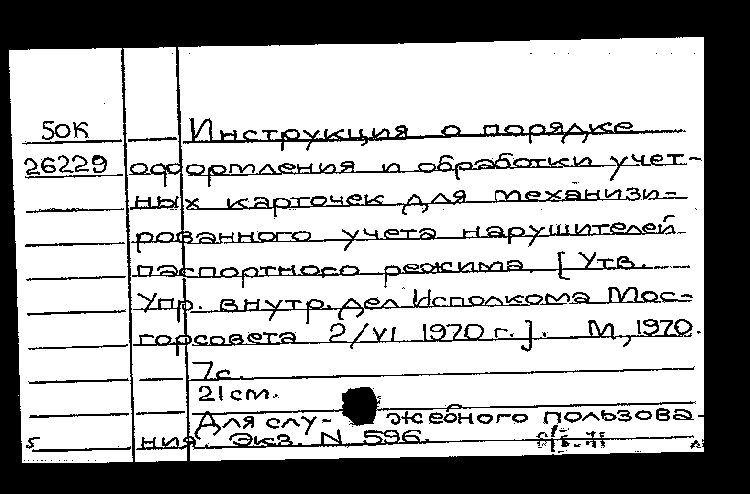 50К Инструкция о порядке
26229 оформления и обработки учет-
ных карточек для механизи-
рованного учета нарушителей
паспортного режима. [Утв.
Упр. внутр. дел Исполкома Мос-
горсовета 2/VI 1970 г.]. М., 1970.
7с.
21 см.
Для слу- жебного пользова-
5 ния. Экз. N 596.